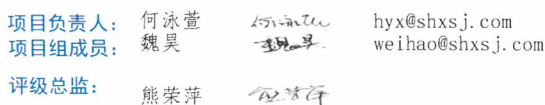 项目负责人： 何泳萱 何泳萱 hyx@shxsj.com
项目组成员： 魏昊 魏昊 weihao@shxsj.com
评级总监： 熊荣萍 熊荣萍